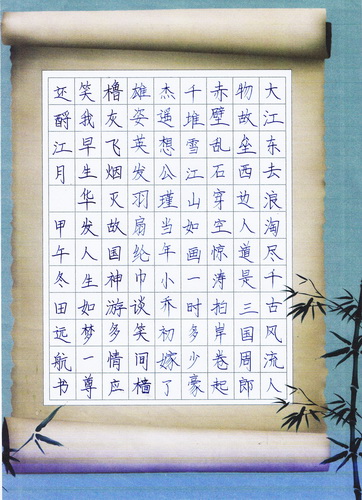 大江东去浪淘尽千古风流人
物故垒西边人道是三国周郎
赤壁乱石穿空惊涛拍岸卷起
千堆雪江山如画一时多少豪
杰遥想公瑾当年小乔初嫁了
雄姿英发羽扇纶巾谈笑间樯
橹灰飞烟灭故国神游多情应
笑我早生华发人生如梦一尊
还酹江月 甲午冬田远航书